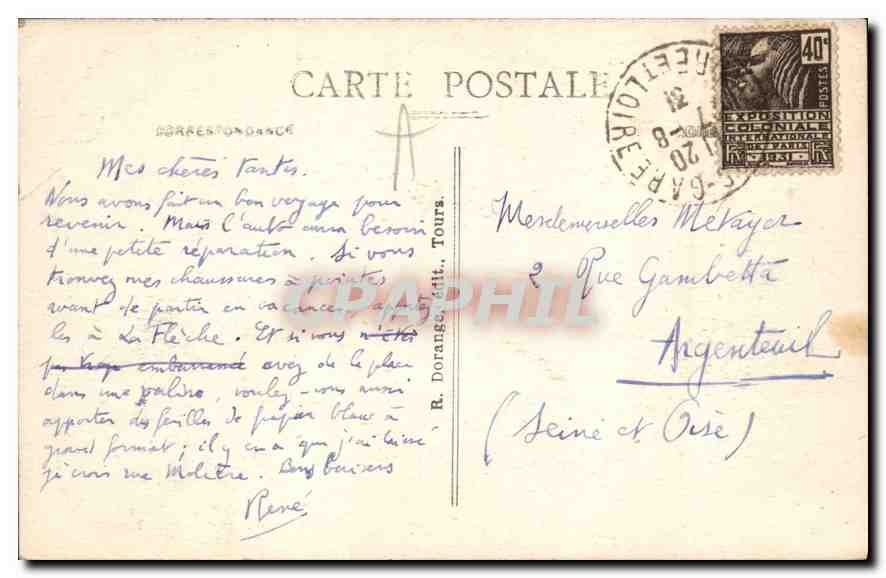 CARTE POSTALE
CORRESPONDANCE
A
Mes chères Tantes.
Nous avons fait un bon voyage pour
revenir. Mais l'auto aura besoin
d'une petite réparation. Si vous
trouvez mes chaussures à pointes
avant de partir en vacances, apportez
les à La Flèche. Et si vous n'êtes
pas trop embarrassé avez de la place
dans une valise, voulez-vous aussi
apporter des feuilles de papier blanc à
grand format; il y en a que j'ai laissé
je crois rue Molière. Bons baisers
René
R. Dorange, édit., Tours.
CPAPHIL
40c
POSTES
EXPOSITION
COLONIALE
INTERNATIONALE
DE PARIS
1931
RF RF
GARE
ET LOIRE
20
8
31
Mesdemoiselles Métayer
2 Rue Gambetta
Argenteuil
(Seine et Oise)